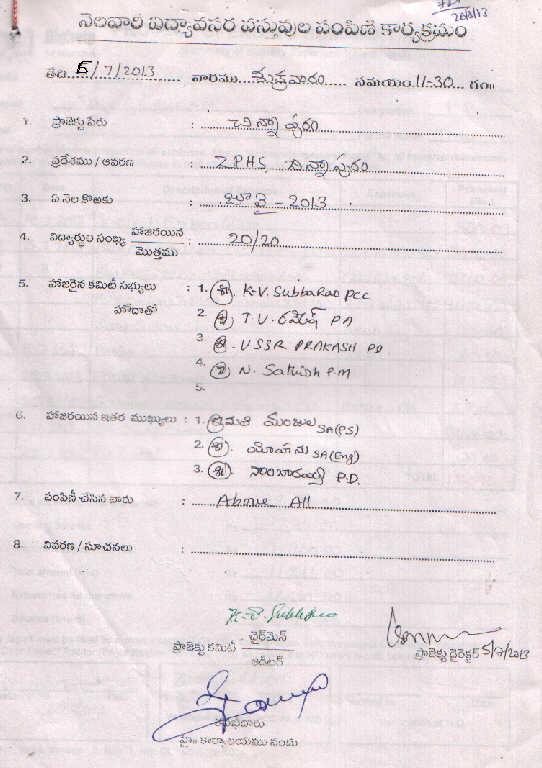 నెలవారి విద్యావసర వస్తువుల పంపిణీ కార్యక్రమం
తేది. 5/7/2013 వారము శుక్రవారం సమయం. 11-30 గం॥
1. ప్రాజెక్టు పేరు : చిన్నాపురం
2. ప్రదేశము / ఆవరణ : ZPHS చిన్నాపురం
3. ఏ నెల కొఱకు : జూలై - 2013
4. విద్యార్థుల సంఖ్య హాజరయిన / మొత్తము : 20/20
5. హాజరైన కమిటీ సభ్యులు : 1. శ్రీ K.V. Subbarao PCC
హోదాతో
2. శ్రీ T.V. రమేష్ PA
3 శ్రీ. VSSR PRAKASH PD
4. శ్రీ N. Sathish P.M
5.
6. హాజరయిన ఇతర ముఖ్యులు : 1. శ్రీమతి మంజుల SA(PS)
2. శ్రీ. మోహను SA(Eng)
3. శ్రీ P.D.
7. పంపిణీ చేసిన వారు : Above All
8. వివరణ / సూచనలు :
ప్రాజెక్టు కమిటీ - ఛైర్మెన్
ప్రాజెక్టు డైరెక్టర్ 5/7/2013